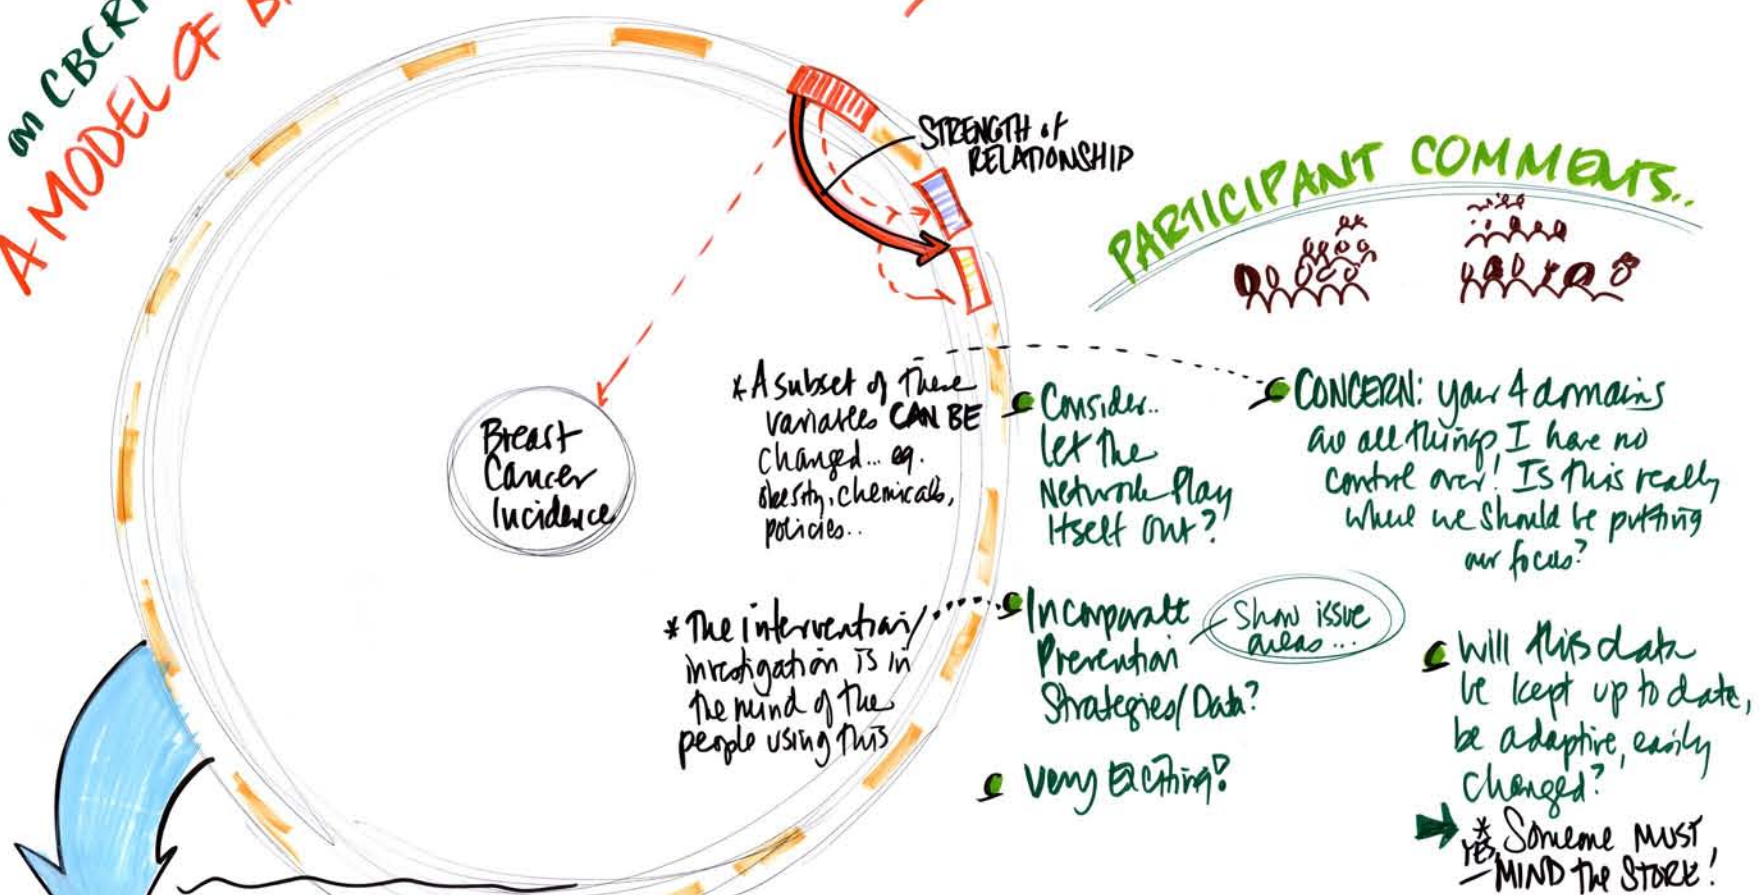 on CBCRP
A MODEL OF B
STRENGTH of
RELATIONSHIP
PARTICIPANT COMMENTS..
Breast
Cancer
Incidence
* A subset of these
variables CAN BE
changed... eg.
obesity, chemicals,
policies..
* The intervention/
investigation is in
the mind of the
people using this
Consider..
let the
Network Play
Itself out?
Incorporate
Prevention
Strategies/Data?
Show issue
areas...
Very Exciting!
CONCERN: your 4 domains
are all things I have no
control over! Is this really
where we should be putting
our focus?
Will this data
be kept up to date,
be adaptive, easily
changed?
* YES, Someone MUST
MIND the STORE!